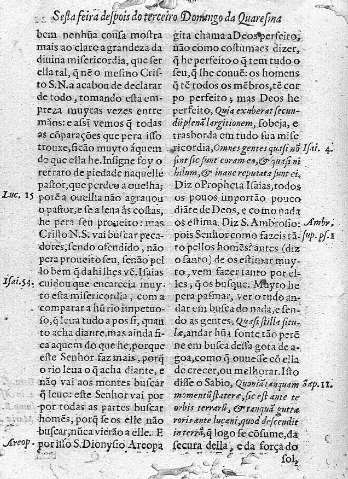 Sesta feira despois do terceiro Domingo da Quaresma
bem nenhũa cousa mostra
mais ao claro a grandeza da
divina misericordia, que ser
ella tal, q̃ nẽ o mesmo Cris-
to S.N. a acabou de declarar
de todo, tomando esta em-
preza muytas vezes entre
mãos: e assi vemos q̃ todas
as cõparações que pera isso
trouxe, ficão muyto àquem
do que ella he. Insigne foy o
retrato de piedade naquelle
pastor, que perdeo a ouelha;
Luc. 15
porẽ a ouelha não agrauou
o pastor, e se a leua às costas,
he pera seu proueito: mas
Cristo N.S. vai buscar peca-
dores, sendo offendido, não
pera proueito seu, senão pel-
lo bem q̃ dahi lhes vẽ. Isaias
Isai. 54.
cuidou que encarecia muy-
to esta misericordia, com a
comparar a hũ rio impetuo-
so, q̃ leua tudo a pos si, quan-
to acha diante, mas ainda fi-
ca aquem do que he, porque
este Senhor faz mais, porq̃
o rio leua o q̃ acha diante, e
não vai aos montes buscar
q̃ leue: este Senhor vai por
por todas as partes buscar
homẽs, porq̃ se os elle não
buscar, nũca virão a elle. E
Areop.
por isso S. Dionysio Areopa
gita chama a Deos perfeito,
não como costumaes dizer,
q̃ he perfeito o q̃ tem tudo o
seu, q̃ lhe conuẽ: os homens
q̃ tẽ todos os mẽbros, tẽ cor
po perfeito; mas Deos he
perfeito, Quia exuberat secun-
dũ plenã largitionem, sobeja, e
trasborda em tudo sua mise
ricordia, Omnes gentes quasi nõ
Isai. 4.
sint sic sunt coram eo, & quasi ni
hilum, & inane reputatæ sunt ei,
Diz o Propheta Isaias, todos
os pouos importão pouco
diãte de Deos, e como nada
os estima. Diz S. Ambrosio:
Ambr.
Senhor como fazeis tã-
sup. ps. 1
to pellos homẽs antes (diz
o santo) de os estimar muy-
to, vem fazer tanto por el-
les, q̃ os busque. Muyto he
pera pasmar, ver o tudo an-
dar em busca do nada, e sen-
do as gentes, Quasi stilla situ-
læ, andar hũa fonte tão perẽ
ne em busca dessa gota de a-
goa, como q̃ ouuesse cõ ella
de crecer, ou melhorar. Isto
disse o Sabio, Quoniã tanquam
Sap. 11.
momentũ stateræ, sic est ante te
orbis terrarũ, & tanquã gutta
roris ante lucani, quæ descendit
in terrã, q̃ logo se cõsume, da
secura della, e da força do
sol,